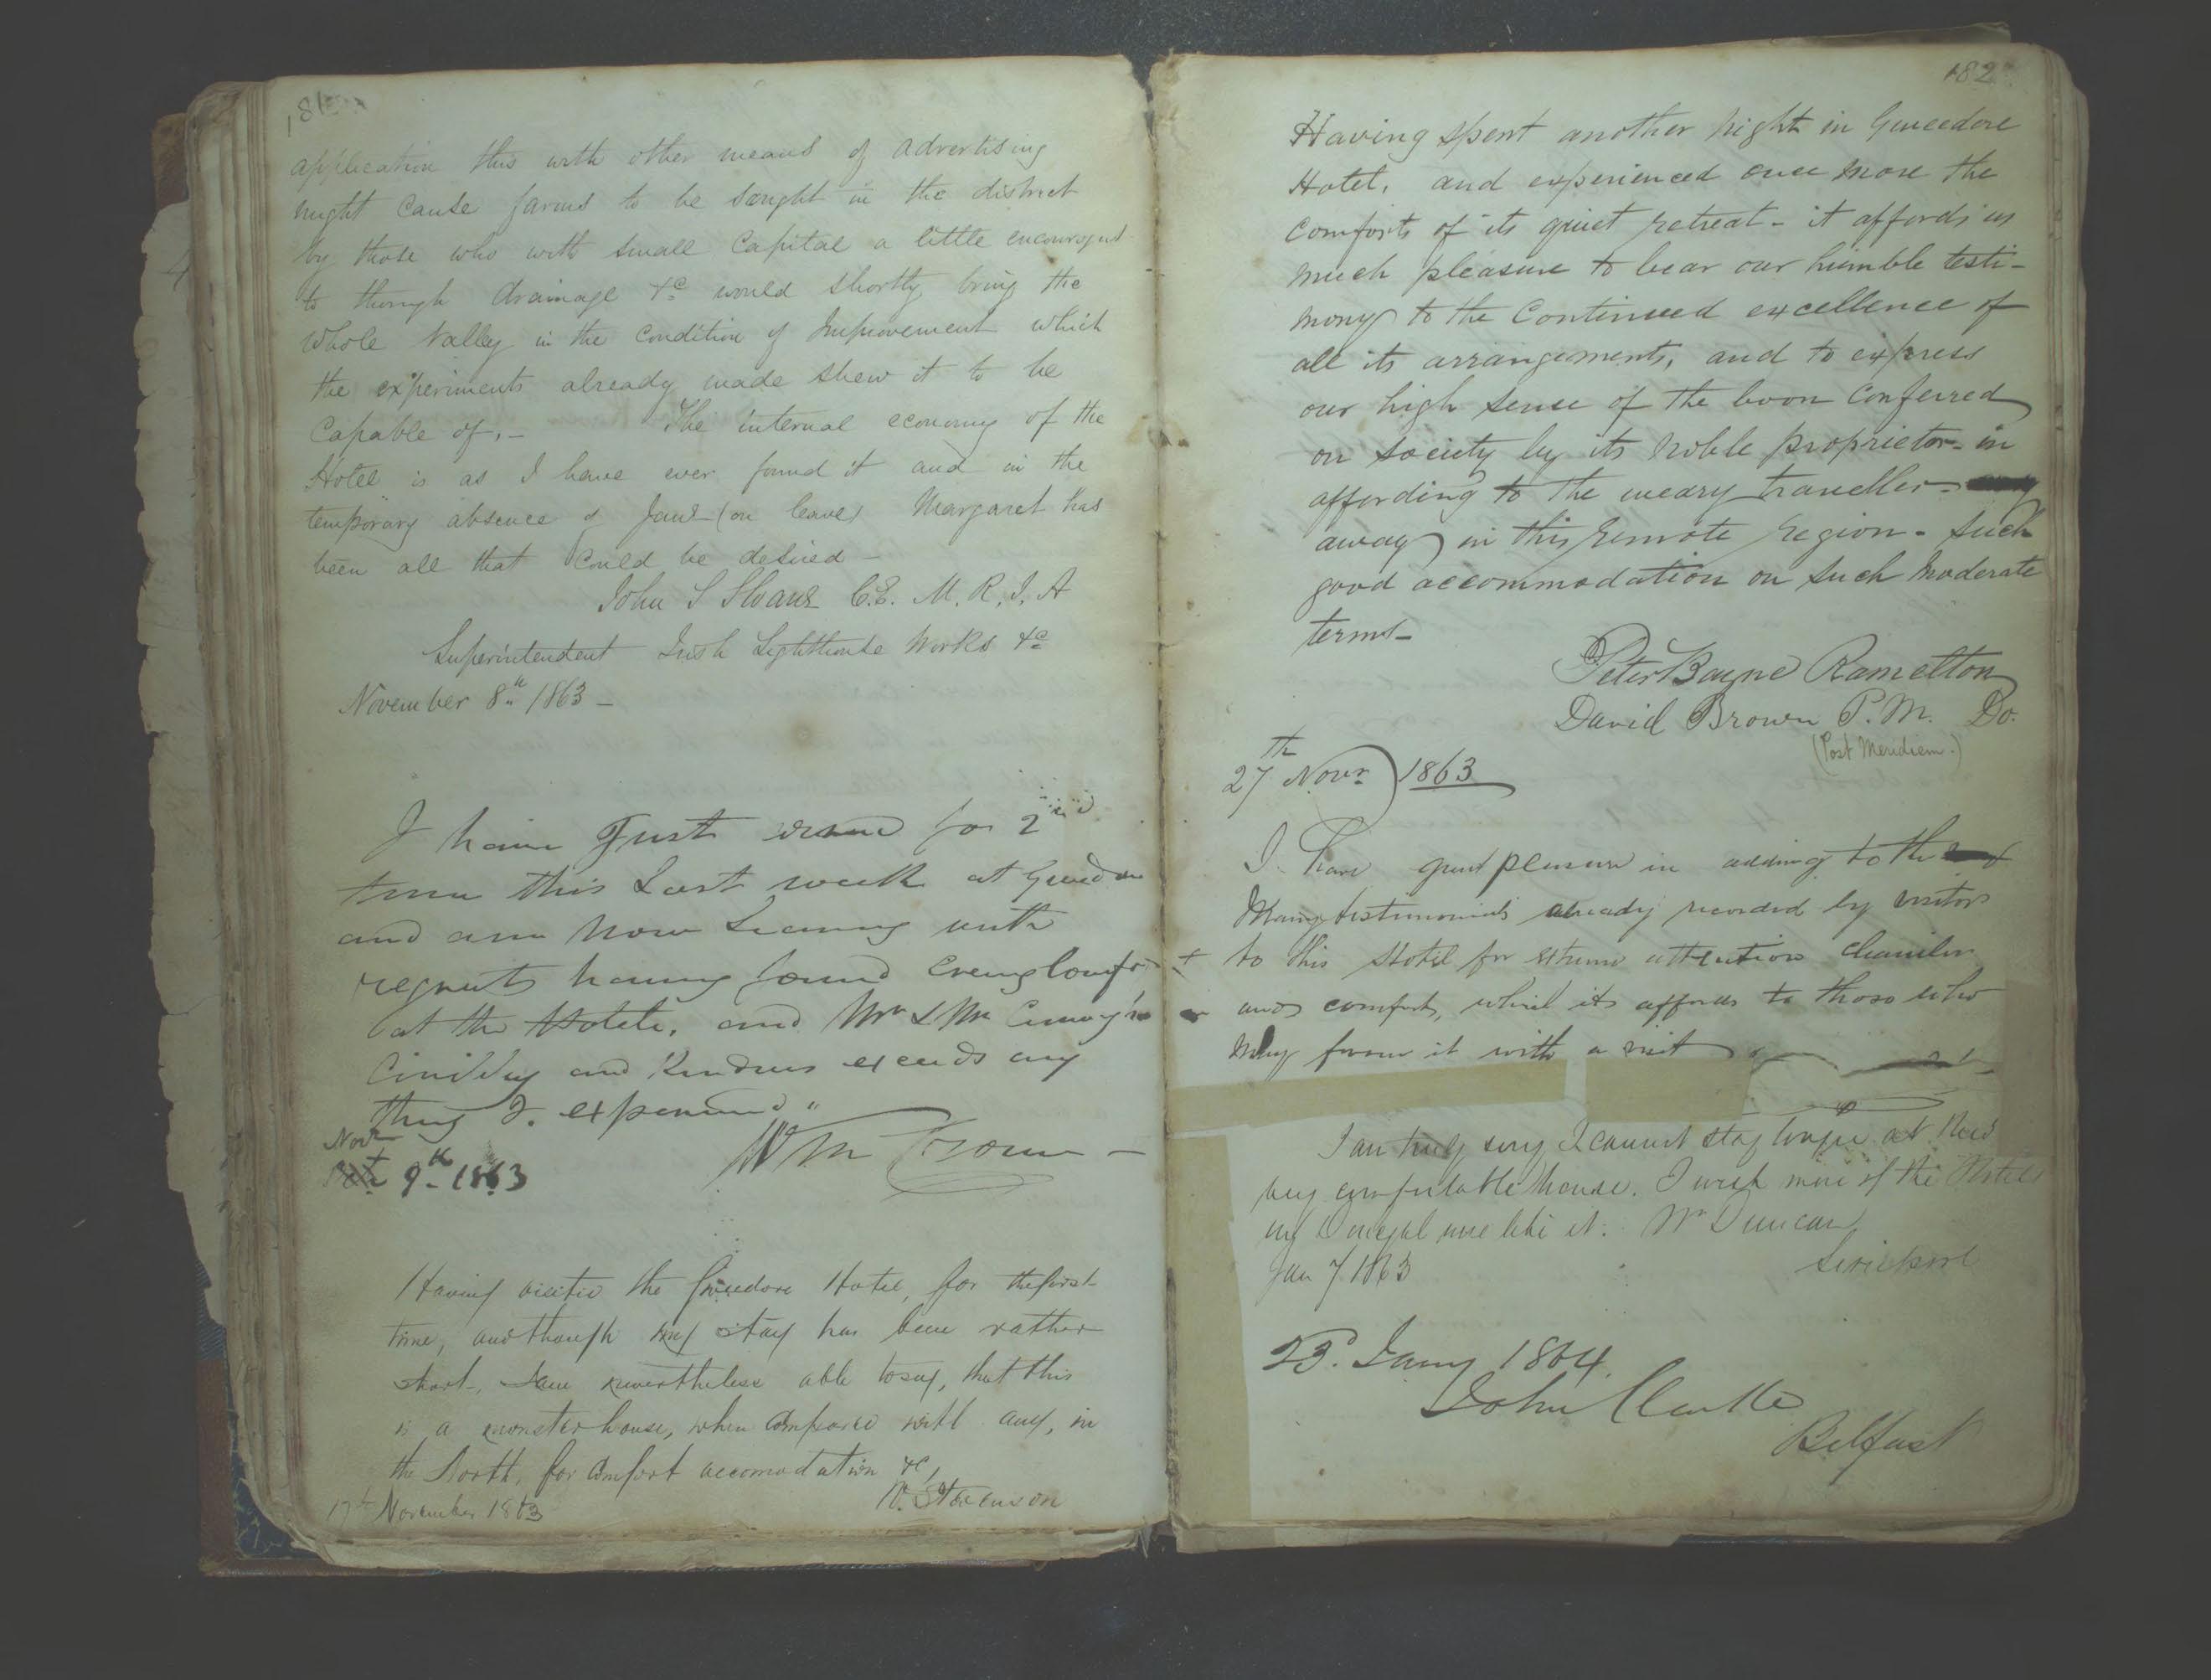 181
application this with other means of advertising
might cause farms to be sought in the district
by those who with small capital a little
to through drainage &c would shortly bring the
whole Valley in the condition of Improvement which
the experiments already made shew it to be
Capable of. — The internal economy of the
Hotel is as I have ever found it and in the
temporary absence of Jane (on leave) Margaret has
been all that could be desired —
John S Sloane C.E. M.R.I.A
Superintendent Irish Lighthouse Works &c
November 8th 1863 —
I have Just for 2nd
time this Last week at
and am Now Leaving with
regrets having found
at the Hotele, and Mr & Mrs
Civility and Kindness exceeds any
thing I. experienced"
Novr
Oct 9th 1863
Wm Brown —
Having visited the Gweedore Hotel, for the first
time, and though my stay has been rather
short, I am nevertheless able to say, that this
is a monster house, when compared with any, in
the North, for comfort accomodation &c,
17th November 1863
W. Stevenson
182
Having spent another night in Gweedore
Hotel, and experienced once more the
comforts of its quiet retreat - it affords us
much pleasure to bear our humble testi-
mony to the Continued excellence of
all its arrangements, and to express
our high sense of the boon Conferred
on society by its noble proprietor - in
affording to the weary traveller -
away in this remote region - such
good accommodation on such moderate
terms -
Peter Bayne Ramelton
David Brown P.M. Do.
(Post Meridiem.)
27th Novr 1863
I have great pleasure in adding to the
Many testimonials already recorded by visitors
to this Hotel for extreme attention
and comfort, which it affords to those who
May favour it with a visit
I am truly sorry I cannot stay longer at this
very comfortable house. I wish more of the Hotels
in Donegal were like it. Wm Duncan
Jan 7 1863
23. Jany 1864.
John Clarke
Belfast